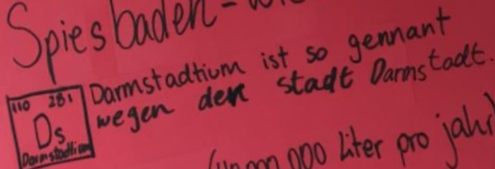 Spiesbaden-
110 281
Ds
Darmstadtium
Darmstadtium ist so gennant
wegen der stadt Darmstadt.
000 Liter pro jahr)